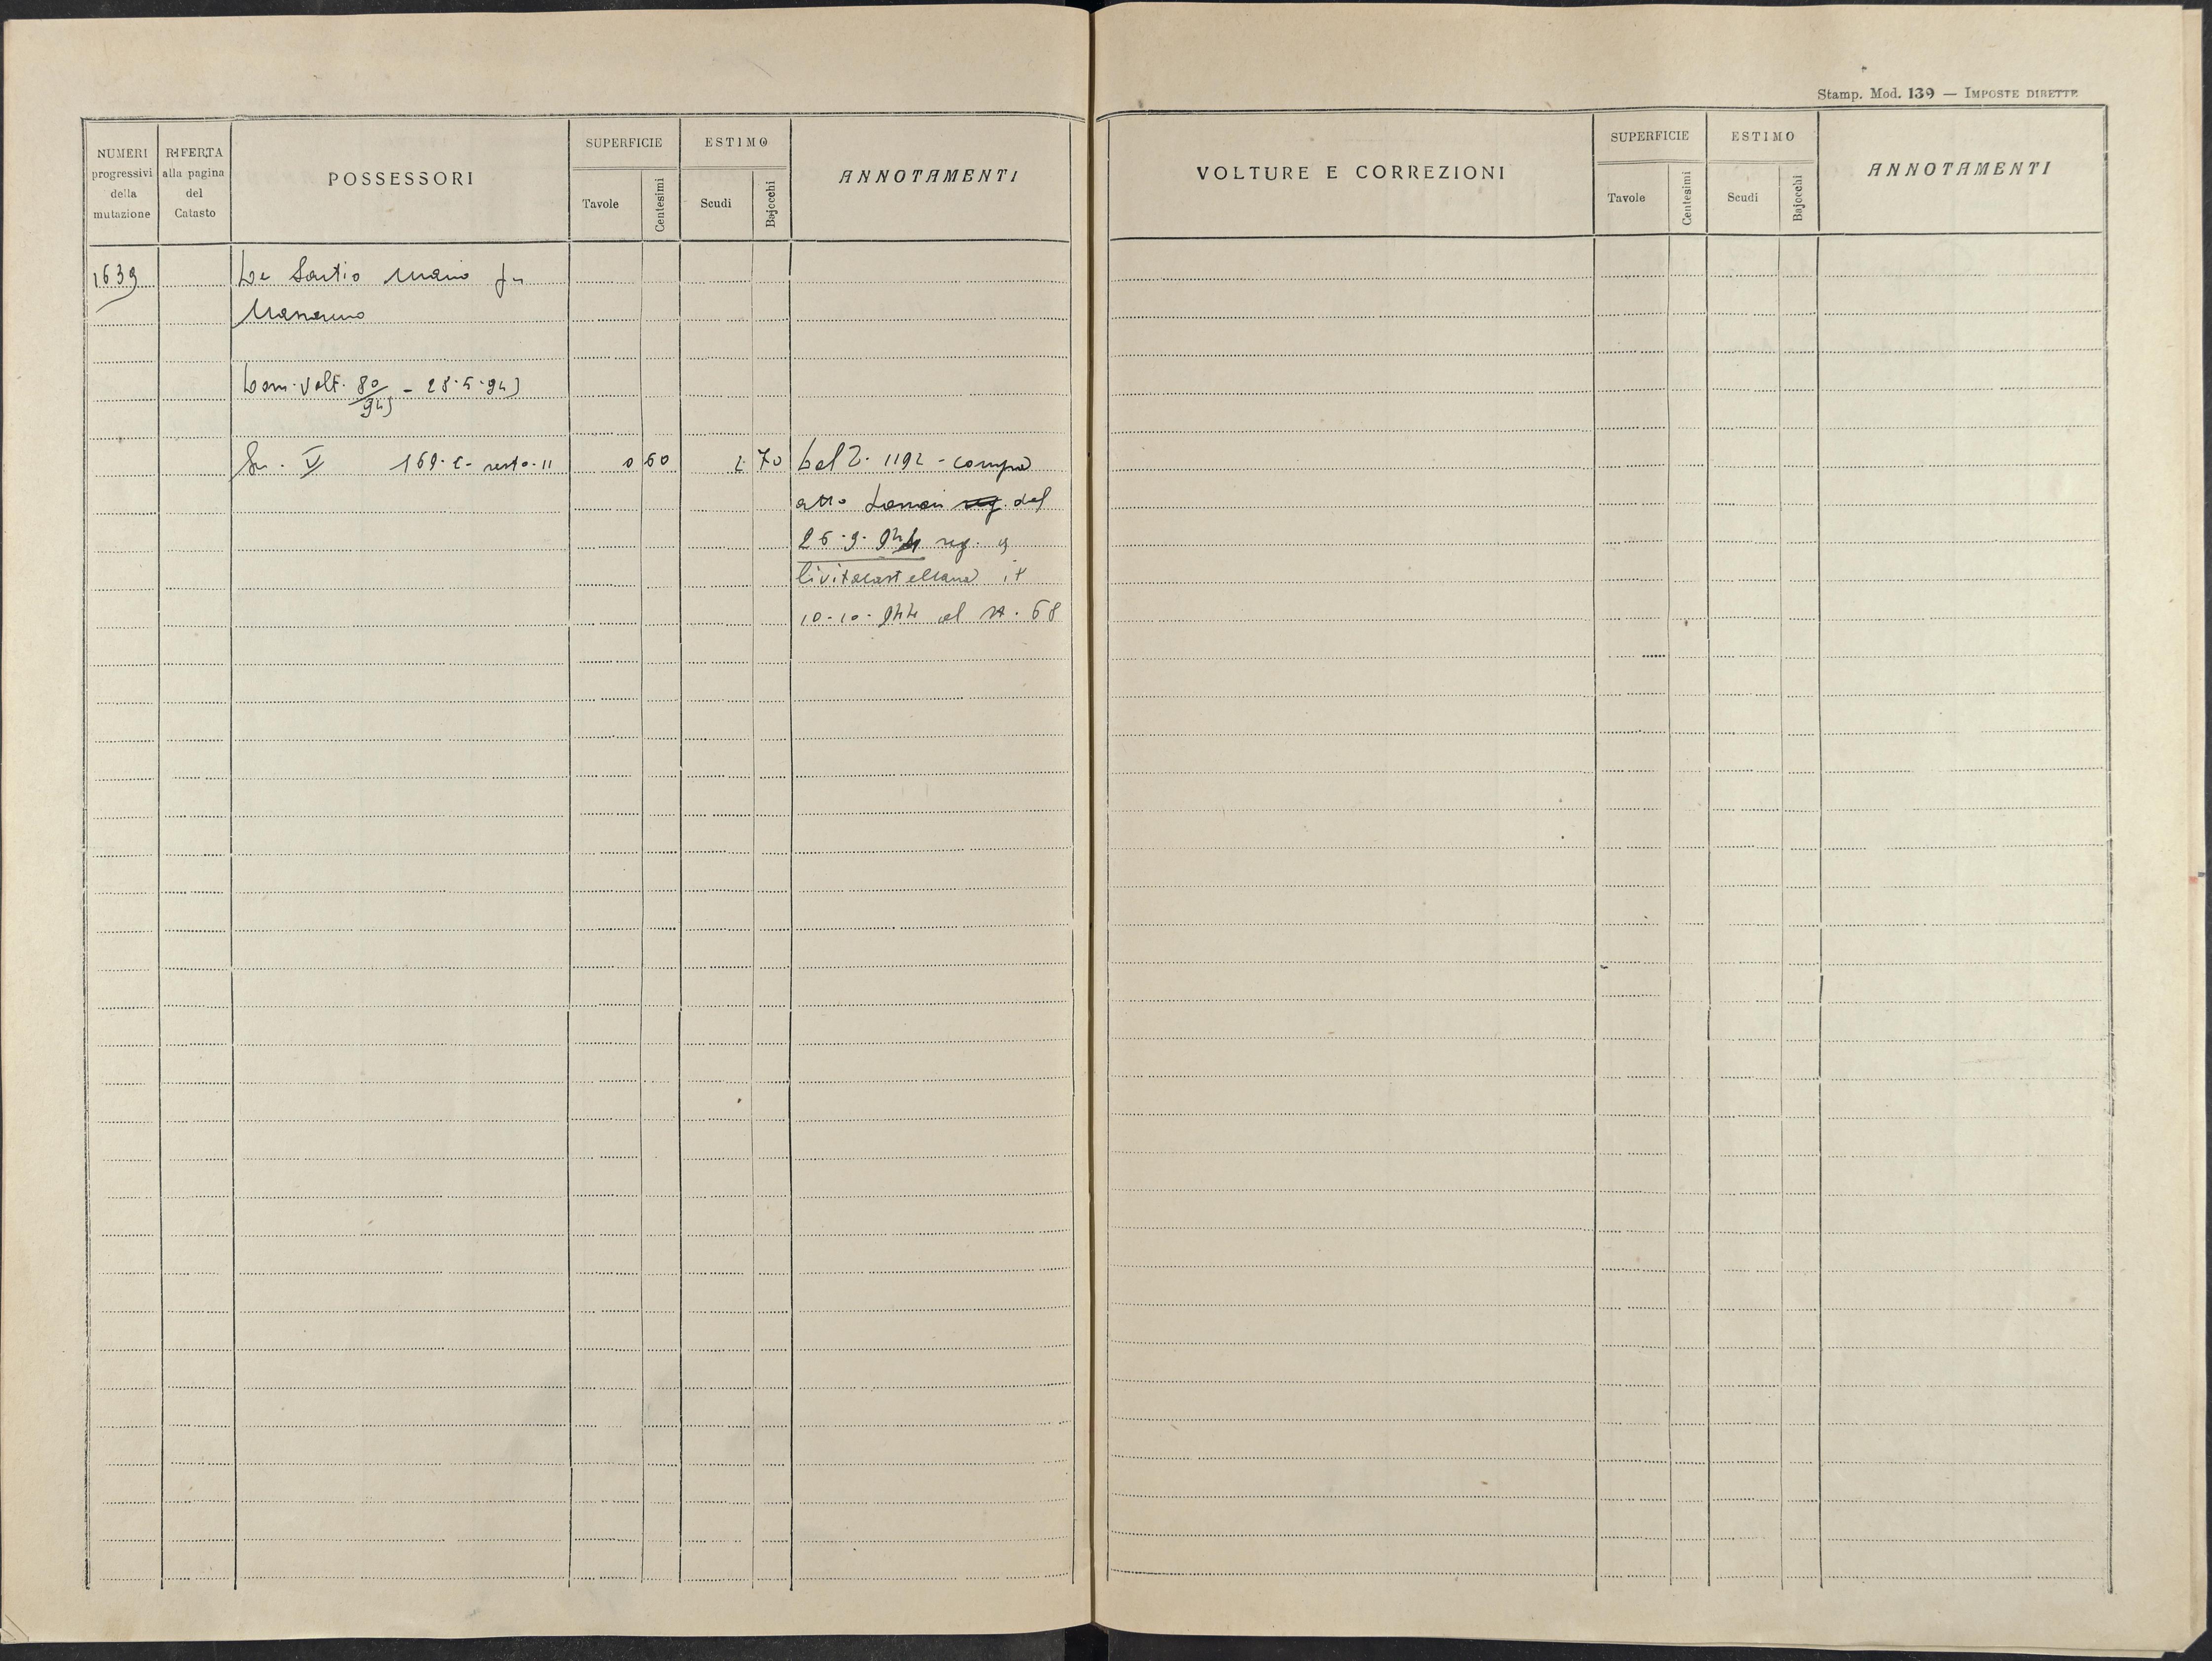 Stamp. Mod. 139 — IMPOSTE DIRETTE
NUMERI progressivi della mutazione
RIFERTA alla pagina del Catasto
POSSESSORI
SUPERFICIE
Tavole
Centesimi
ESTIMO
Scudi
Bajocchi
ANNOTAMENTI
VOLTURE E CORREZIONI
SUPERFICIE
Tavole
Centesimi
ESTIMO
Scudi
Bajocchi
ANNOTAMENTI
1639
De Mario fu
Dom. Volt. 80/945 - 28.5.945
Sez. V 169.2 resto. II 0 60 2 70 Dal 2. 1192 - compra
atto reg. del
26.9.944 reg. a
Civitacastellana il
10.10.944 al N. 68